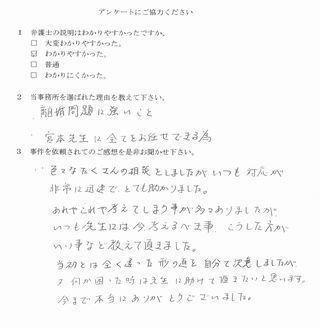 アンケートにご協力ください
1 弁護士の説明はわかりやすかったですか。
□ 大変わかりやすかった。
☑ わかりやすかった。
□ 普通
□ わかりにくかった。
2 当事務所を選ばれた理由を教えて下さい。
離婚問題に強いこと
宮本先生に全てをお任せできる為
3 事件を依頼されてのご感想を是非お聞かせ下さい。
色々なたくさんの相談としましたが いつも 対応が
非常に迅速で、とても助かりました。
あれやこれや考えてしまう事が多々ありましたが
いつも先生には今考えるべき事、こうした方が
いい事など教えて頂きました。
当初とは全く違った形の道を自分で決意しましたが
又何か困った時は先生に助けて頂きたいと思います。
今まで本当にありがとうございました。